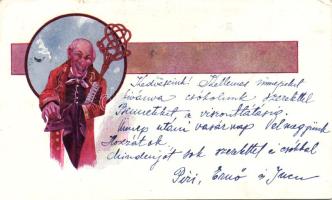 Kedveseink! Kellemes ünnepeket
kívánva csókolunk szeretettel
Benneteket, a viszontlátásig.
Ünnep utáni vasárnap felmegyünk
Hozzátok.
Mindenjót sok szeretettel és csókkal
Piri, Ernő